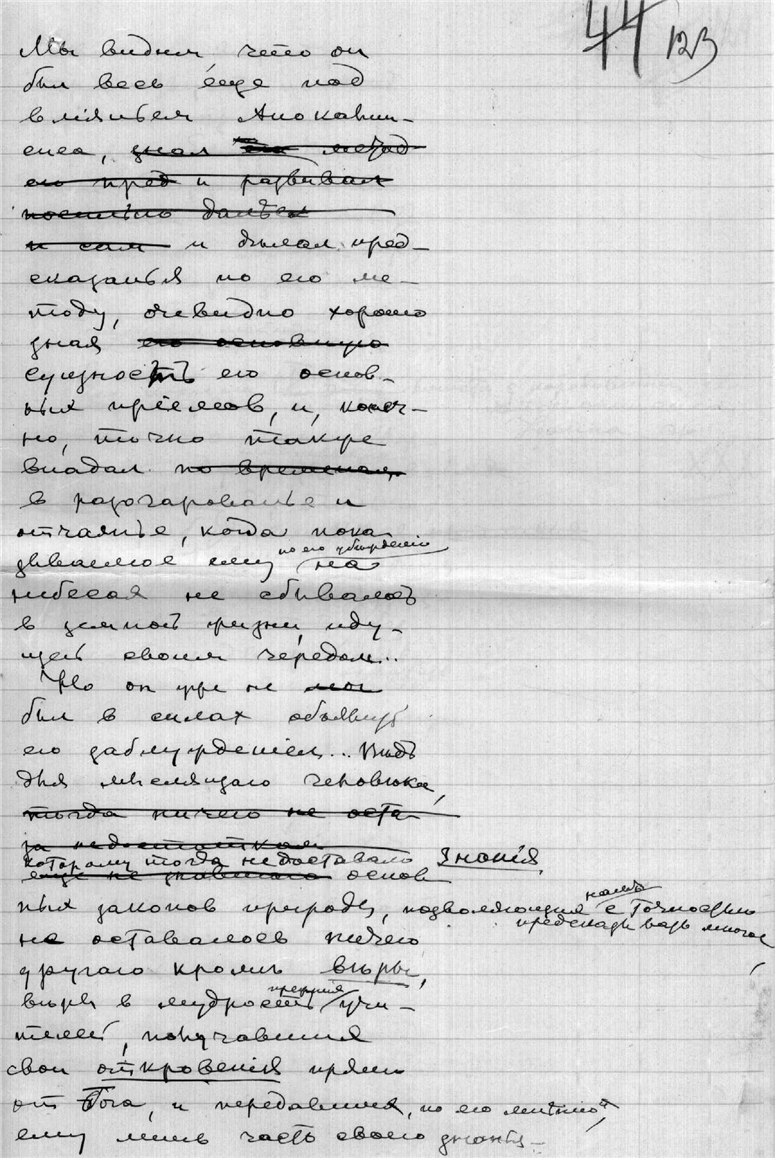 44 123
Мы видим что он
был весь еще под
влияньем Апокалип-
сиса, знал его метод
его пред и развивал
посильно далѣе
и сам и дѣлал пред-
сказанья по его ме-
тоду, очевидно хорошо
зная его основную
сущность его основ-
ных прiемов, и, конеч-
но, точно также
впадал по временам
в разочарованье и
отчаянье, когда пока-
по его убѣжденiю
зываемое ему на
небесах не сбывалось
в земной жизни, иду-
щей своим чередом...
Но он уже не мог
был в силах объявить
его заблужденiем... Вѣдь
для мыслящаго человѣка,
тогда ничего не оста-
за недостатком
которому тогда недоставало знанiя
еще не знавшаго основ-
ных законов природы, позволяющих намъ с точностью
предсказывать многое,
не оставалось ничего
другого кромѣ вѣры,
вѣры в мудрость прежних учи-
телей, получавших
свои откровенiя прямо
от Бога, и передавших, по его мнѣнiю,
ему лишь часть своего знанья